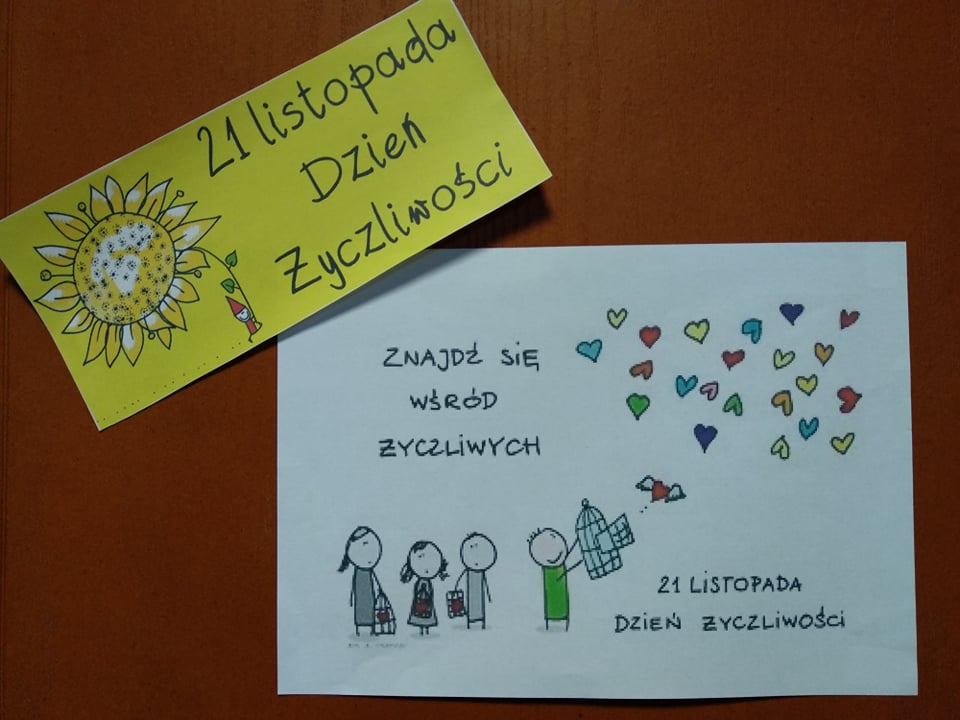 21 listopada
Dzień
Życzliwości
ZNAJDŹ SIĘ
WŚRÓD
ŻYCZLIWYCH
21 LISTOPADA
DZIEŃ ŻYCZLIWOŚCI